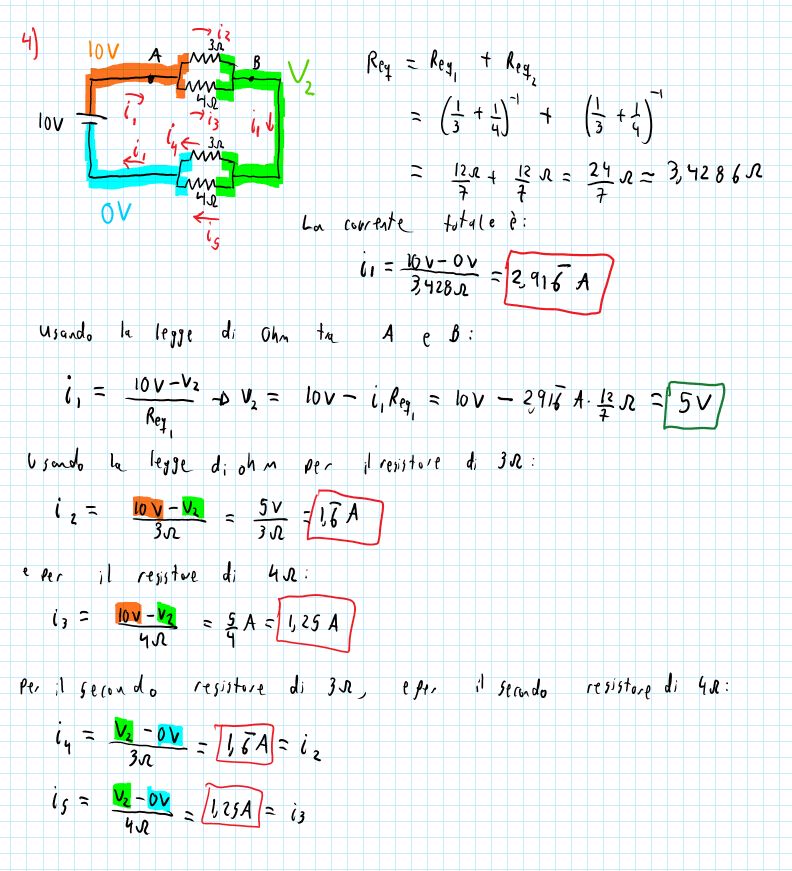 4)
10V
A
i₂
3Ω
B
V₂
4Ω
10V
i₁
i₃
i₁
i₄
3Ω
i₁
4Ω
0V
i₅
Req = Req₁ + Req₂
= (1/3 + 1/4)⁻¹ + (1/3 + 1/4)⁻¹
= 12Ω/7 + 12/7 Ω = 24/7 Ω ≈ 3,4286Ω
La corrente totale è:
i₁ = 10V-0V/3,428Ω = 2,916̅ A
Usando la legge di Ohm tra A e B:
i₁ = 10V-V₂/Req₁ → V₂ = 10V - i₁Req₁ = 10V - 2,916̅ A · 12/7 Ω = 5V
Usando la legge di ohm per il resistore di 3Ω:
i₂ = 10V-V₂/3Ω = 5V/3Ω = 1,6̅ A
e per il resistore di 4Ω:
i₃ = 10V-V₂/4Ω = 5/4 A = 1,25 A
Per il secondo resistore di 3Ω, e per il secondo resistore di 4Ω:
i₄ = V₂-0V/3Ω = 1,6̅ A = i₂
i₅ = V₂-0V/4Ω = 1,25A = i₃